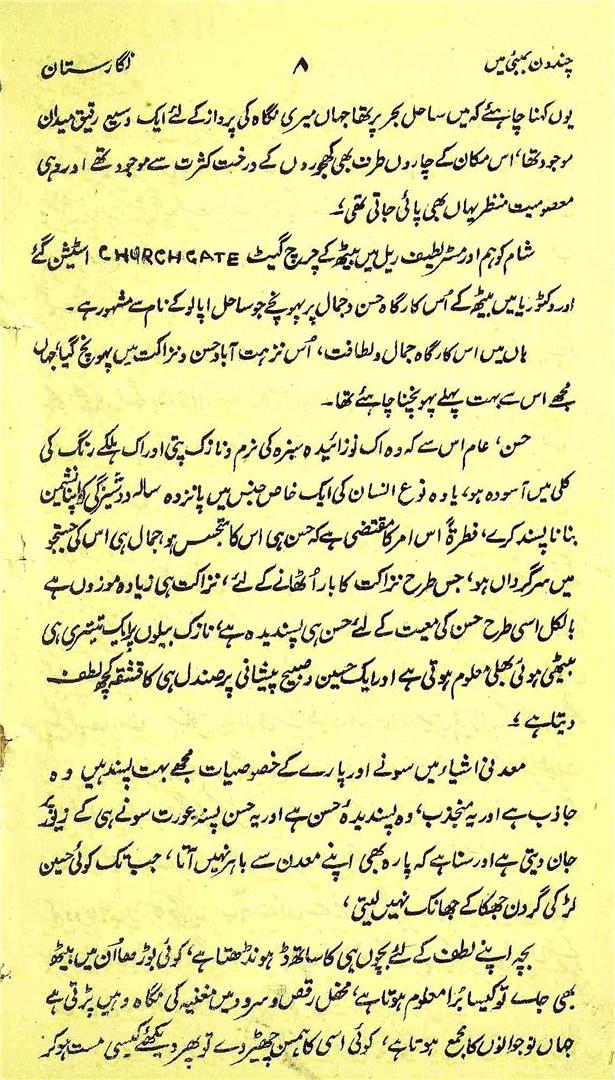 چند دن بمبئی میں ۸ نگارستان
یوں کہنا چاہئے کہ میں ساحل بحر پر تھا جہاں میری نگاہ کی پرواز کے لئے ایک وسیع رقیق میدان
موجود تھا، اس مکان کے چاروں طرف بھی کھجوروں کے درخت کثرت سے موجود تھے اور وہی
معصومیت منظر یہاں بھی پائی جاتی تھی؛۔
شام کو ہم اور مسٹر لطیف ریل میں بیٹھ کے چرچ گیٹ CHURCHGATE اسٹیشن گئے
اور وکٹوریا میں بیٹھ کے اُس کارگاہ حسن و جمال پر پہونچے جو ساحل اپالو کے نام سے مشہور ہے۔
ہاں میں اس کارگاہ جمال و لطافت، اُس نزہت آباد حسن و نزاکت میں پہونچ گیا، جہاں
مجھے اس سے بہت پہلے پہونچنا چاہئے تھا۔
حسن، عام اس سے کہ وہ اک نوزائیدہ سبزہ کی نرم و نازک پتی اور اک ہلکے رنگ کی
کلی میں آسودہ ہو، یا وہ نوع انسان کی ایک خاص جنس میں پانزدہ سالہ دوشیزگی کو اپنا نشیمن
بنانا پسند کرے، فطرۃً اس امر کا مقتضی ہے کہ حسن ہی اس کا متجسس ہو، جمال ہی اس کی جستجو
میں سرگرداں ہو، جس طرح نزاکت کا بار اُٹھانے کے لئے، نزاکت ہی زیادہ موزوں ہے
بالکل اسی طرح حسن کی معیت کے لئے حسن ہی پسندیدہ ہے، نازک بیلوں پر ایک تیتری ہی
بیٹھی ہوئی بھلی معلوم ہوتی ہے اور ایک حسین و صبیح پیشانی پر صندل ہی کا قشقہ کچھ لطف
دیتا ہے؛۔
معدنی اشیاء میں سونے اور پارے کے خصوصیات مجھے بہت پسند ہیں وہ
جاذب ہے اور یہ منجذب، وہ پسندیدۂ حسن ہے اور یہ حسن پسند عورت سونے ہی کے زیور پر
جان دیتی ہے اور سنا ہے کہ پارہ بھی اپنے معدن سے باہر نہیں آتا، جب تک کوئی حسین
لڑکی گردن جھکا کے جھانک نہیں لیتی،
بچہ اپنے لطف کے لئے بچوں ہی کا ساتھ ڈھونڈھتا ہے، کوئی بوڑھا اُن میں بیٹھ
بھی جائے تو کیسا بُرا معلوم ہوتا ہے، محفل رقص و سرود میں مغنیہ کی نگاہ وہیں پڑتی ہے
جہاں نوجوانوں کا مجمع ہوتا ہے، کوئی اسی کا ہمسن چھیڑ دے تو پھر دیکھئے کیسی مست ہو کر